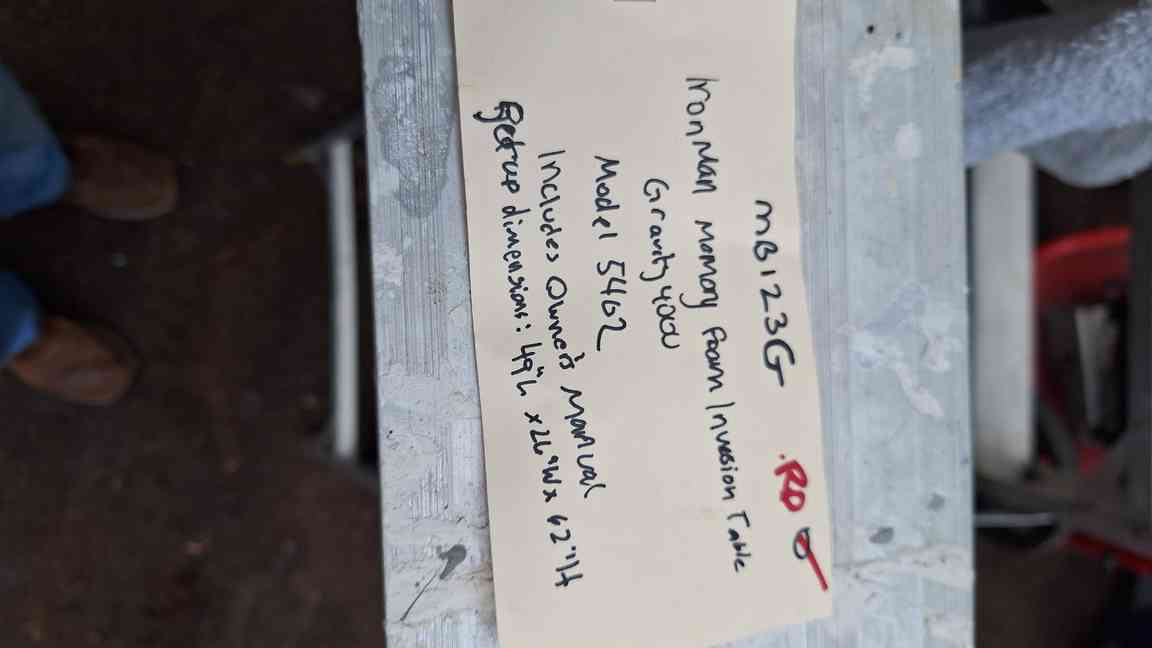 MB123G .RD
IronMan Momory Foam Invesion Table
Gravity 4000
Model 5462
Includes Owner's Manual
Setup dimensions: 49"L x 26"W x 62"H